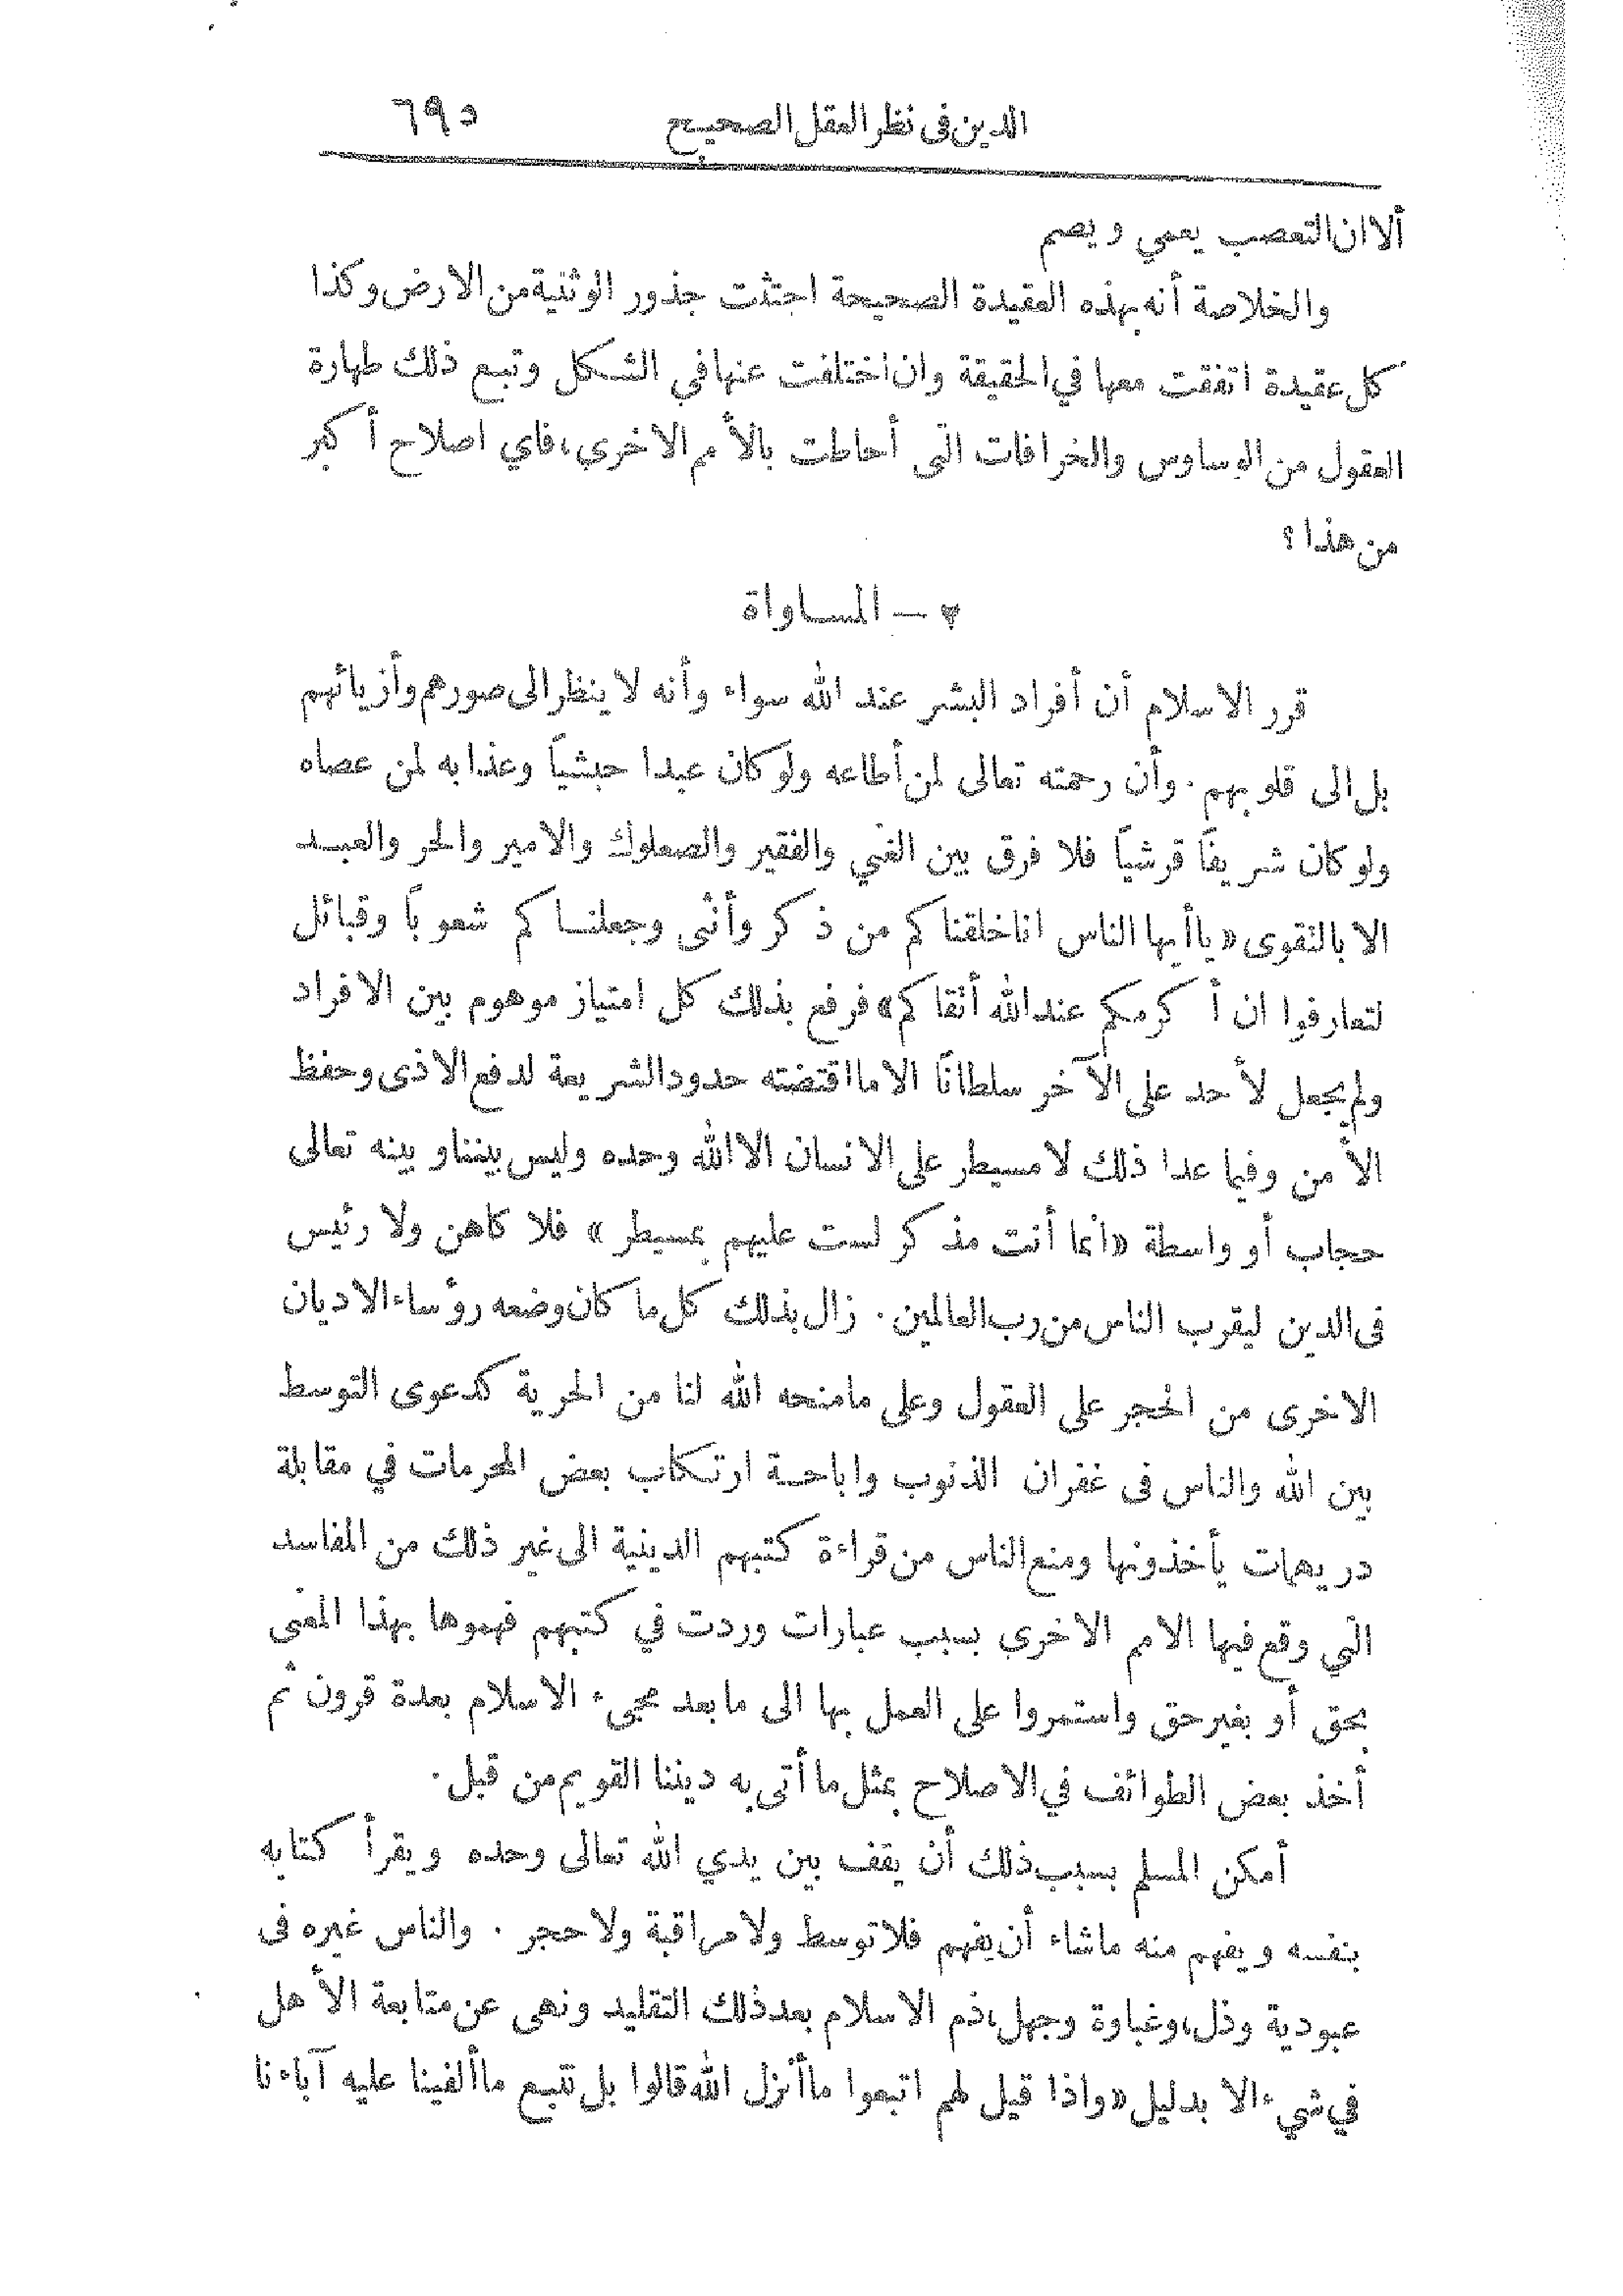 الدين فى نظر العقل الصحيح ٦٩٥
ألا ان التعصب يعمي ويصم
والخلاصة أنه بهذه العقيدة الصحيحة اجتثت جذور الوثنية من الارض وكذا
كل عقيدة اتفقت معها في الحقيقة وان اختلفت عنها في الشكل وتبع ذلك طهارة
العقول من الوساوس والخرافات التى أحاطت بالأمم الاخرى، فاي اصلاح أكبر
من هذا؟
— المساواة
قرر الاسلام أن أفراد البشر عند الله سواء وأنه لا ينظر الى صورهم وأزيائهم
بل الى قلوبهم . وأن رحمته تعالى لمن أطاعه ولو كان عبدا حبشياً وعذابه لمن عصاه
ولو كان شريفاً قرشياً فلا فرق بين الغني والفقير والصعلوك والامير والحر والعبد
الا بالتقوى «ياأيها الناس انا خلقناكم من ذكر وأنثى وجعلناكم شعوباً وقبائل
لتعارفوا ان أكرمكم عند الله أتقاكم» فرفع بذلك كل امتياز موهوم بين الافراد
ولم يجعل لأحد على الآخر سلطانًا الا ما اقتضته حدود الشريعة لدفع الاذى وحفظ
الأمن وفيما عدا ذلك لا مسيطر على الانسان الا الله وحده وليس بيننا وبينه تعالى
حجاب أو واسطة «انما أنت مذكر لست عليهم بمسيطر» فلا كاهن ولا رئيس
فى الدين ليقرب الناس من رب العالمين . زال بذلك كل ما كان وضعه رؤساء الاديان
الاخرى من الحجر على العقول وعلى ما منحه الله لنا من الحرية كدعوى التوسط
بين الله والناس فى غفران الذنوب واباحة ارتكاب بعض المحرمات في مقابلة
دريهمات يأخذونها ومنع الناس من قراءة كتبهم الدينية الى غير ذلك من المفاسد
التي وقع فيها الامم الاخرى بسبب عبارات وردت في كتبهم فهموها بهذا المعنى
بحق أو بغير حق واستمروا على العمل بها الى ما بعد مجيء الاسلام بعدة قرون ثم
أخذ بعض الطوائف في الاصلاح بمثل ما أتى به ديننا القويم من قبل .
أمكن المسلم بسبب ذلك أن يقف بين يدي الله تعالى وحده ويقرأ كتابه
بنفسه ويفهم منه ماشاء أن يفهم فلا توسط ولا مراقبة ولا حجر . والناس غيره فى
عبودية وذل، وغباوة وجهل، ذم الاسلام بعد ذلك التقليد ونهى عن متابعة الأهل
في شيء الا بدليل «واذا قيل لهم اتبعوا ما أنزل الله قالوا بل نتبع ما ألفينا عليه آباءنا